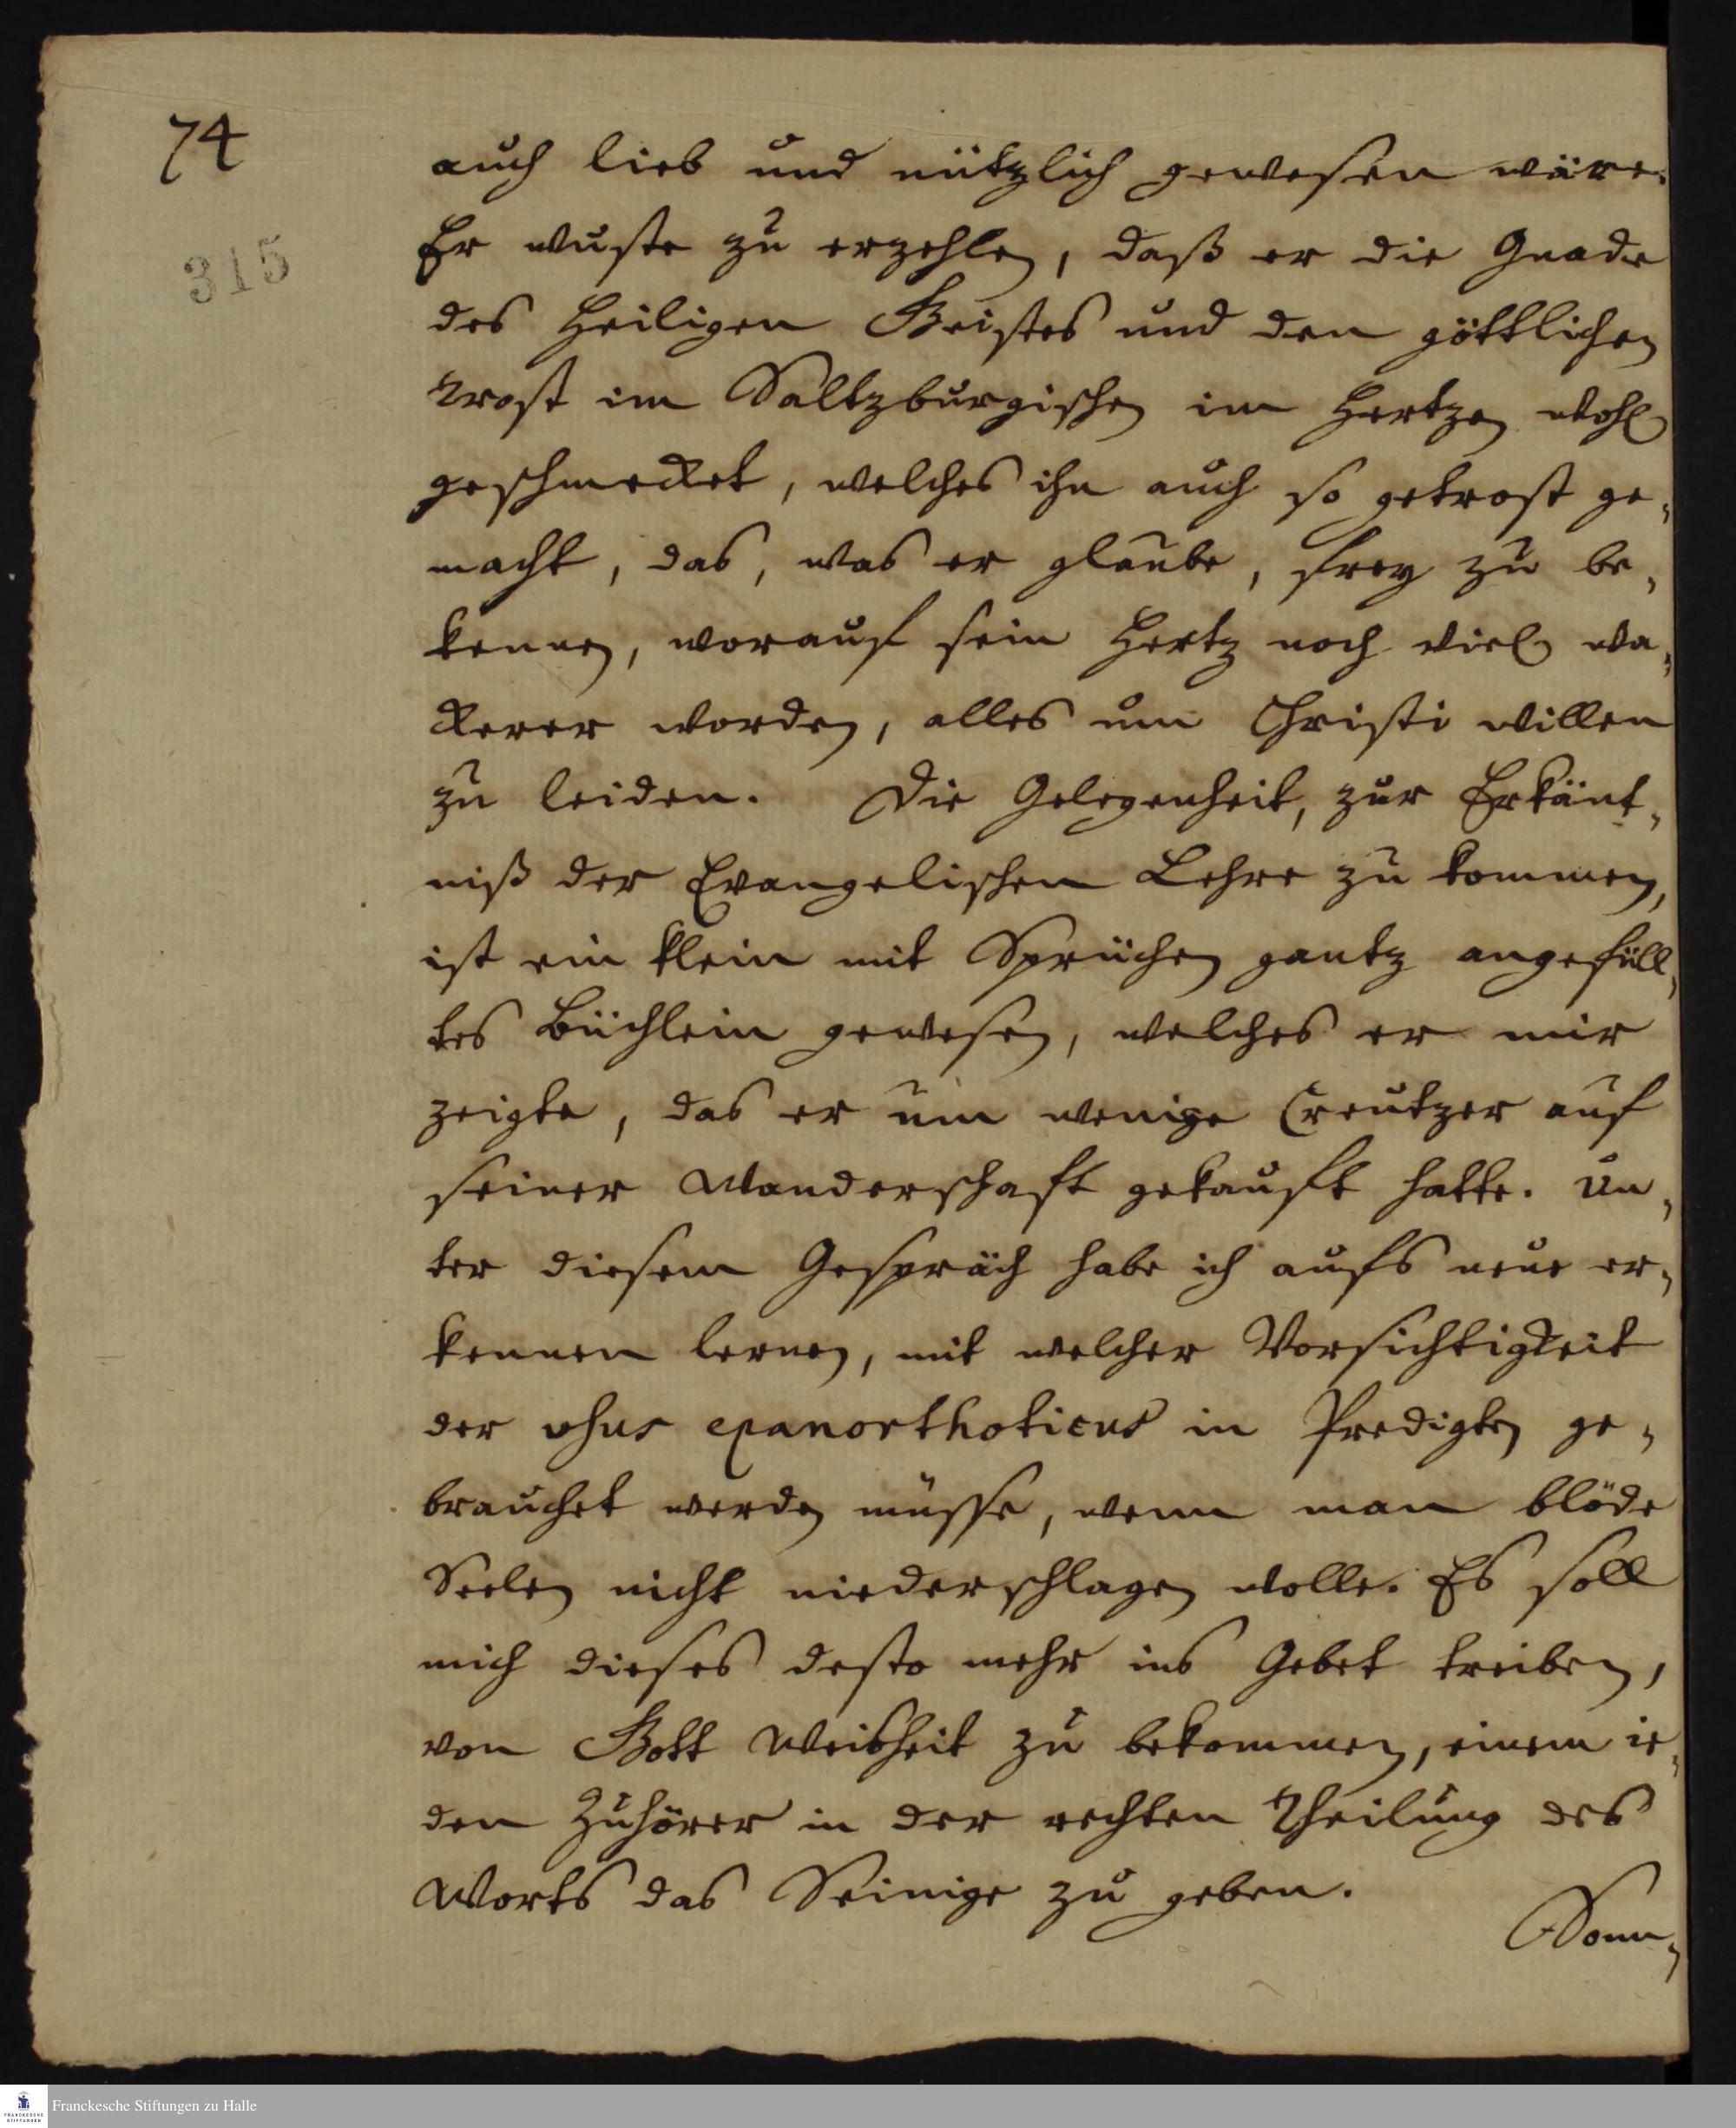 74
315
auch lieb und nützlich gewesen wäre.
Er wuste zu erzehlen, daß er die Gnade
des Heiligen Geistes und den göttlichen
Trost im Saltzburgischen im Hertzen wohl
geschmecket, welches ihn auch so getrost ge-
macht, das, was er glaube, frey zu be-
kennen, worauf sein Hertz noch viel wa-
ckerer worden, alles um Christi willen
zu leiden. Die Gelegenheit, zur Erkänt-
niß der Evangelischen Lehre zu kommen,
ist ein klein mit Sprüchen gantz angefüll-
tes Büchlein gewesen, welches er mir
zeigte, das er um wenige Creutzer auf
seiner Wanderschaft gekauft hatte. Un-
ter diesem Gespräch habe ich aufs neue er-
kennen lernen, mit welcher Vorsichtigkeit
der usus epanorthoticus in Predigten ge-
brauchet werden müsse, wenn man blöde
Seelen nicht niederschlagen wolle. Es soll
mich dieses desto mehr ins Gebet treiben,
von Gott Weisheit zu bekommen, einem ie-
den Zuhörer in der rechten Theilung des
Worts das Seinige zu geben.
Sonn-
Franckesche Stiftungen zu Halle
FRANCKESCHE
STIFTUNGEN